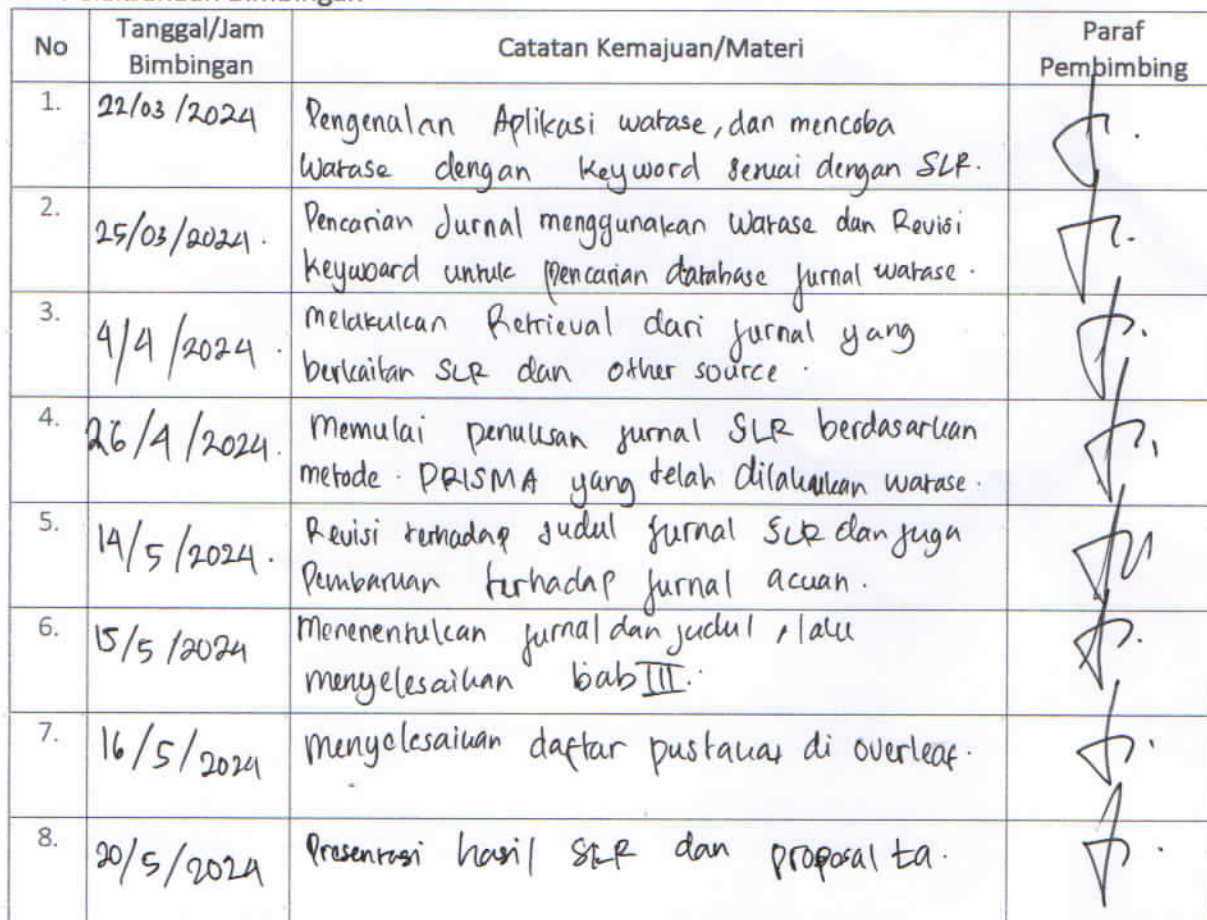 Pelaksanaan Bimbingan
No
Tanggal/Jam
Bimbingan
Catatan Kemajuan/Materi
Paraf
Pembimbing
1.
22/03/2024
Pengenalan Aplikasi watase, dan mencoba
Watase dengan keyword sesuai dengan SLR.
2.
25/03/2024.
Pencarian Jurnal menggunakan Watase dan Revisi
keyword untuk pencarian database jurnal watase.
3.
4/4/2024.
melakukan Retrieval dari jurnal yang
berkaitan SLR dan other source.
4.
26/4/2024.
Memulai penulisan jurnal SLR berdasarkan
metode. PRISMA yang telah dilakukan watase.
5.
14/5/2024.
Revisi terhadap judul jurnal SLR dan juga
Pembaruan terhadap jurnal acuan.
6.
15/5/2024
Menenentukan jurnal dan judul, lalu
menyelesaikan bab III.
7.
16/5/2024
menyelesaikan daftar pustakas di overleaf.
8.
20/5/2024
Presentasi hasil SLR dan proposal ta.